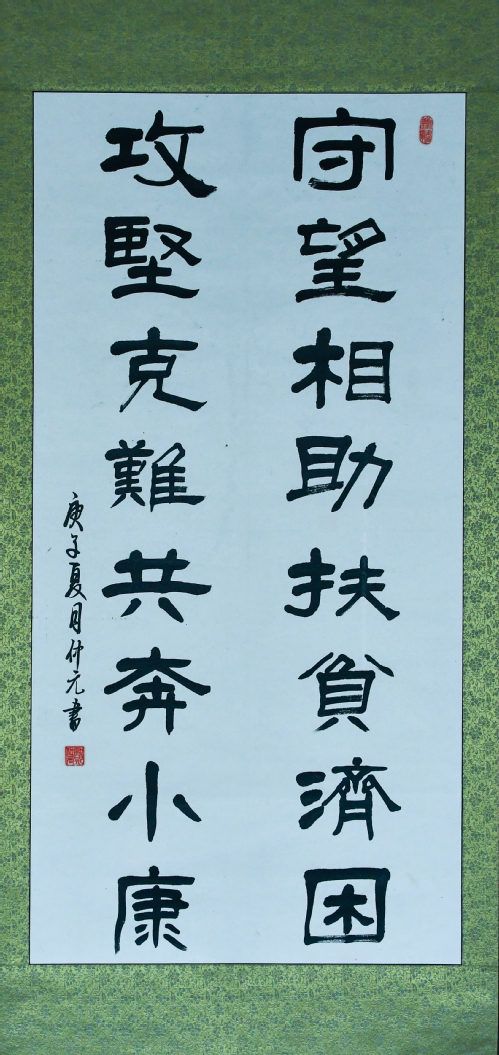 守望相助扶貧濟困
攻堅克難共奔小康
庚子夏月仲元書